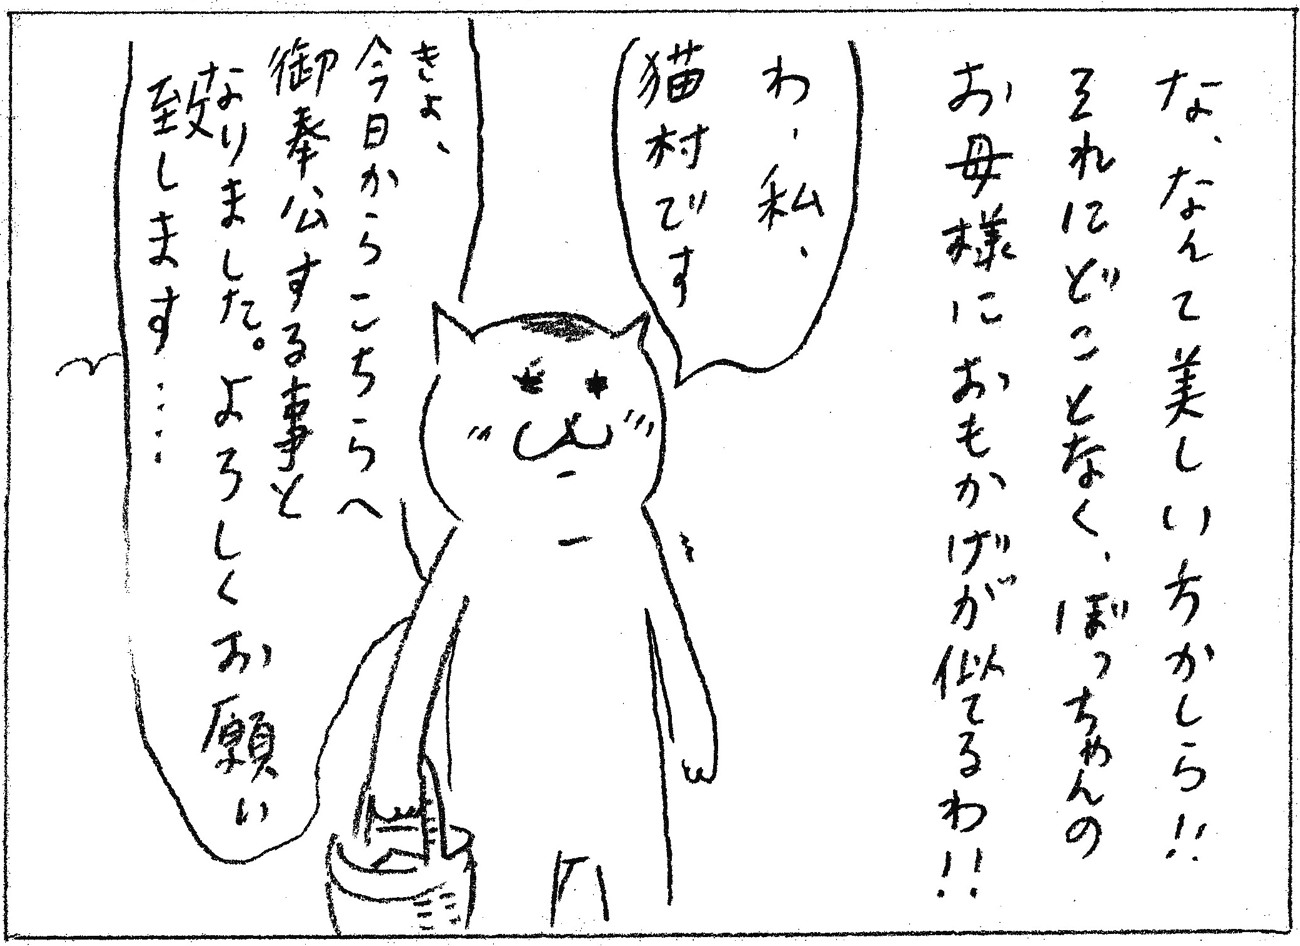 な、なんて美しい方かしら!!
それにどことなく、ぼっちゃんの
お母様におもかげが似てるわ!!
わ、私、
猫村です
きょ、
今日からこちらへ
御奉公する事と
なりました。よろしくお願い
致します……